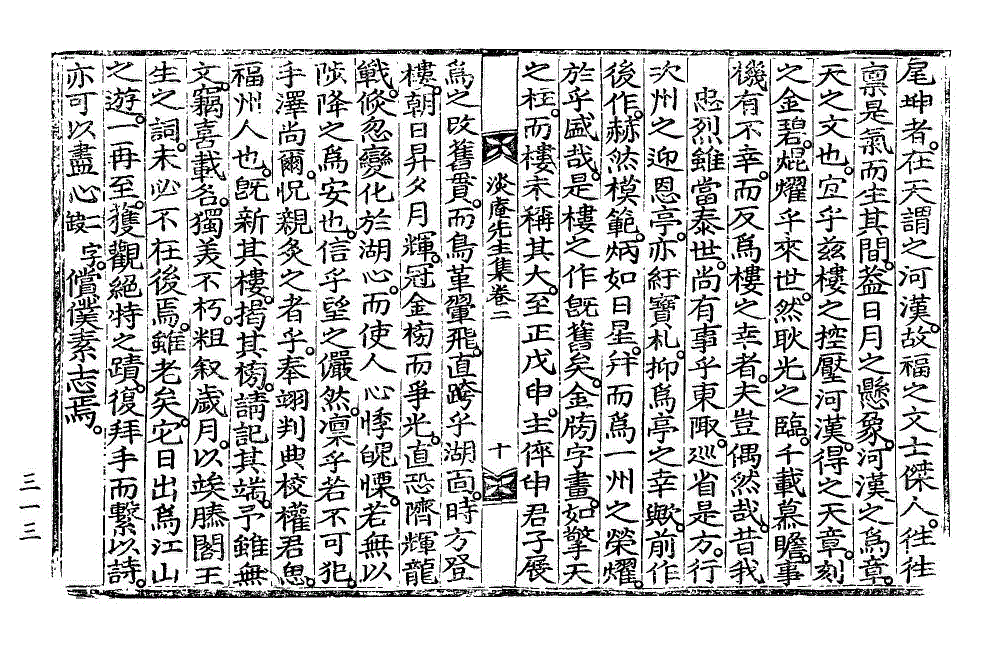 尾坤者。在天謂之河漢。故福之文士傑人。往往
禀是氣而生其間。盖日月之懸象。河漢之爲章。
天之文也。宜乎玆樓之控壓河漢。得之天章。刻
之金碧。焜耀乎來世。然耿光之臨。千載慕瞻。事
機有不幸。而反爲樓之幸者。夫豈偶然哉。昔我
忠烈雖當泰世。尚有事乎東陬。巡省是方。行
次州之迎恩亭。亦紆寶札。抑爲亭之幸歟。前作
後作。赫然模範。炳如日星。并而爲一州之榮耀。
於乎盛哉。是樓之作旣舊矣。金牓字畫。如擎天
之柱。而樓未稱其大。至正戊申。主倅申君子展
淡庵先生集卷二 十
爲之改舊貫。而鳥革翬飛。直跨乎湖面。時方登
樓。朝日昇夕月輝。冠金榜而爭光。直恐隮輝龍
戰。倐忽變化於湖心。而使人心悸魄慄。若無以
陟降之爲安也。信乎望之儼然。凛乎若不可犯。
手澤尚爾。怳親灸之者乎。奉翊判典校權君思
福州人也。旣新其樓。揭其榜。請記其端。予雖無
文。竊喜載名。獨美不朽。粗叙歲月。以竢賸閣王
生之詞。未必不在後焉。雖老矣。它日出爲江山
之遊。一再至。獲觀絕特之蹟。復拜手而繫以詩。
亦可以盡心 缺二字。償僕素志焉。
三一三